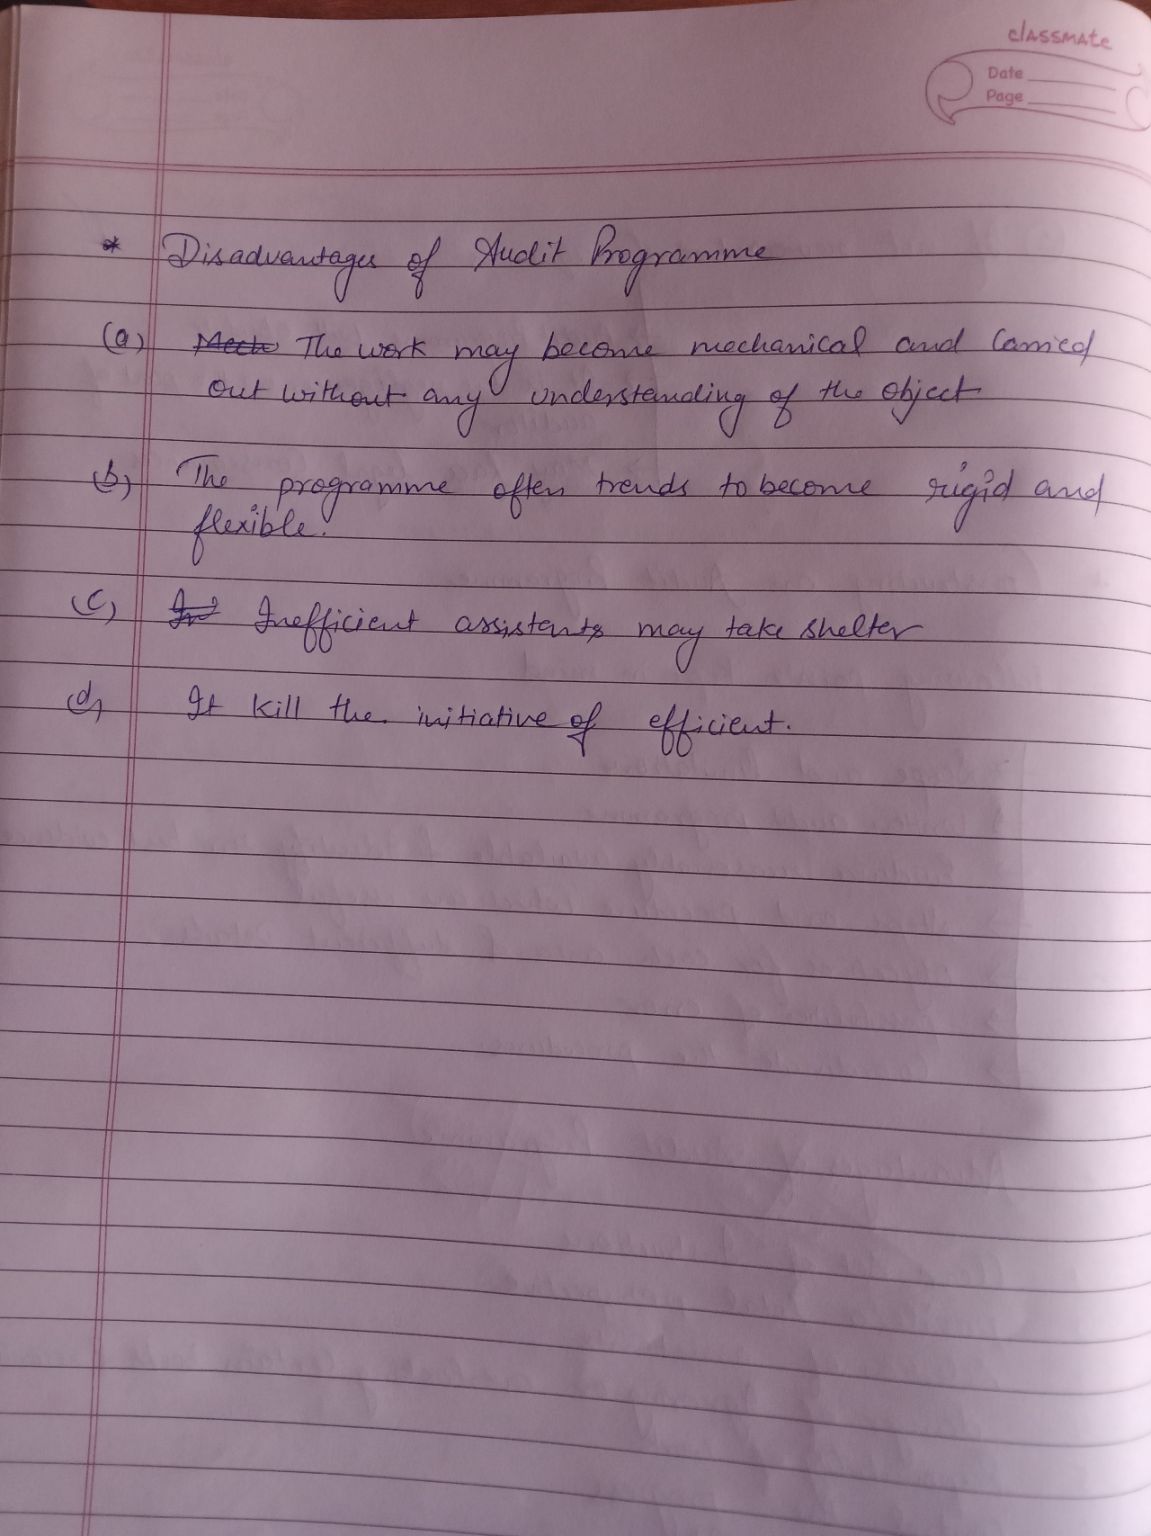 classmate
Date
Page
* Disadvantages of Audit Programme
(a) Mech The work may become mechanical and carried
out without any understanding of the object
(b) The programme often trends to become rigid and
flexible.
(c) In Inefficient assistants may take shelter
(d) It kill the initiative of efficient.